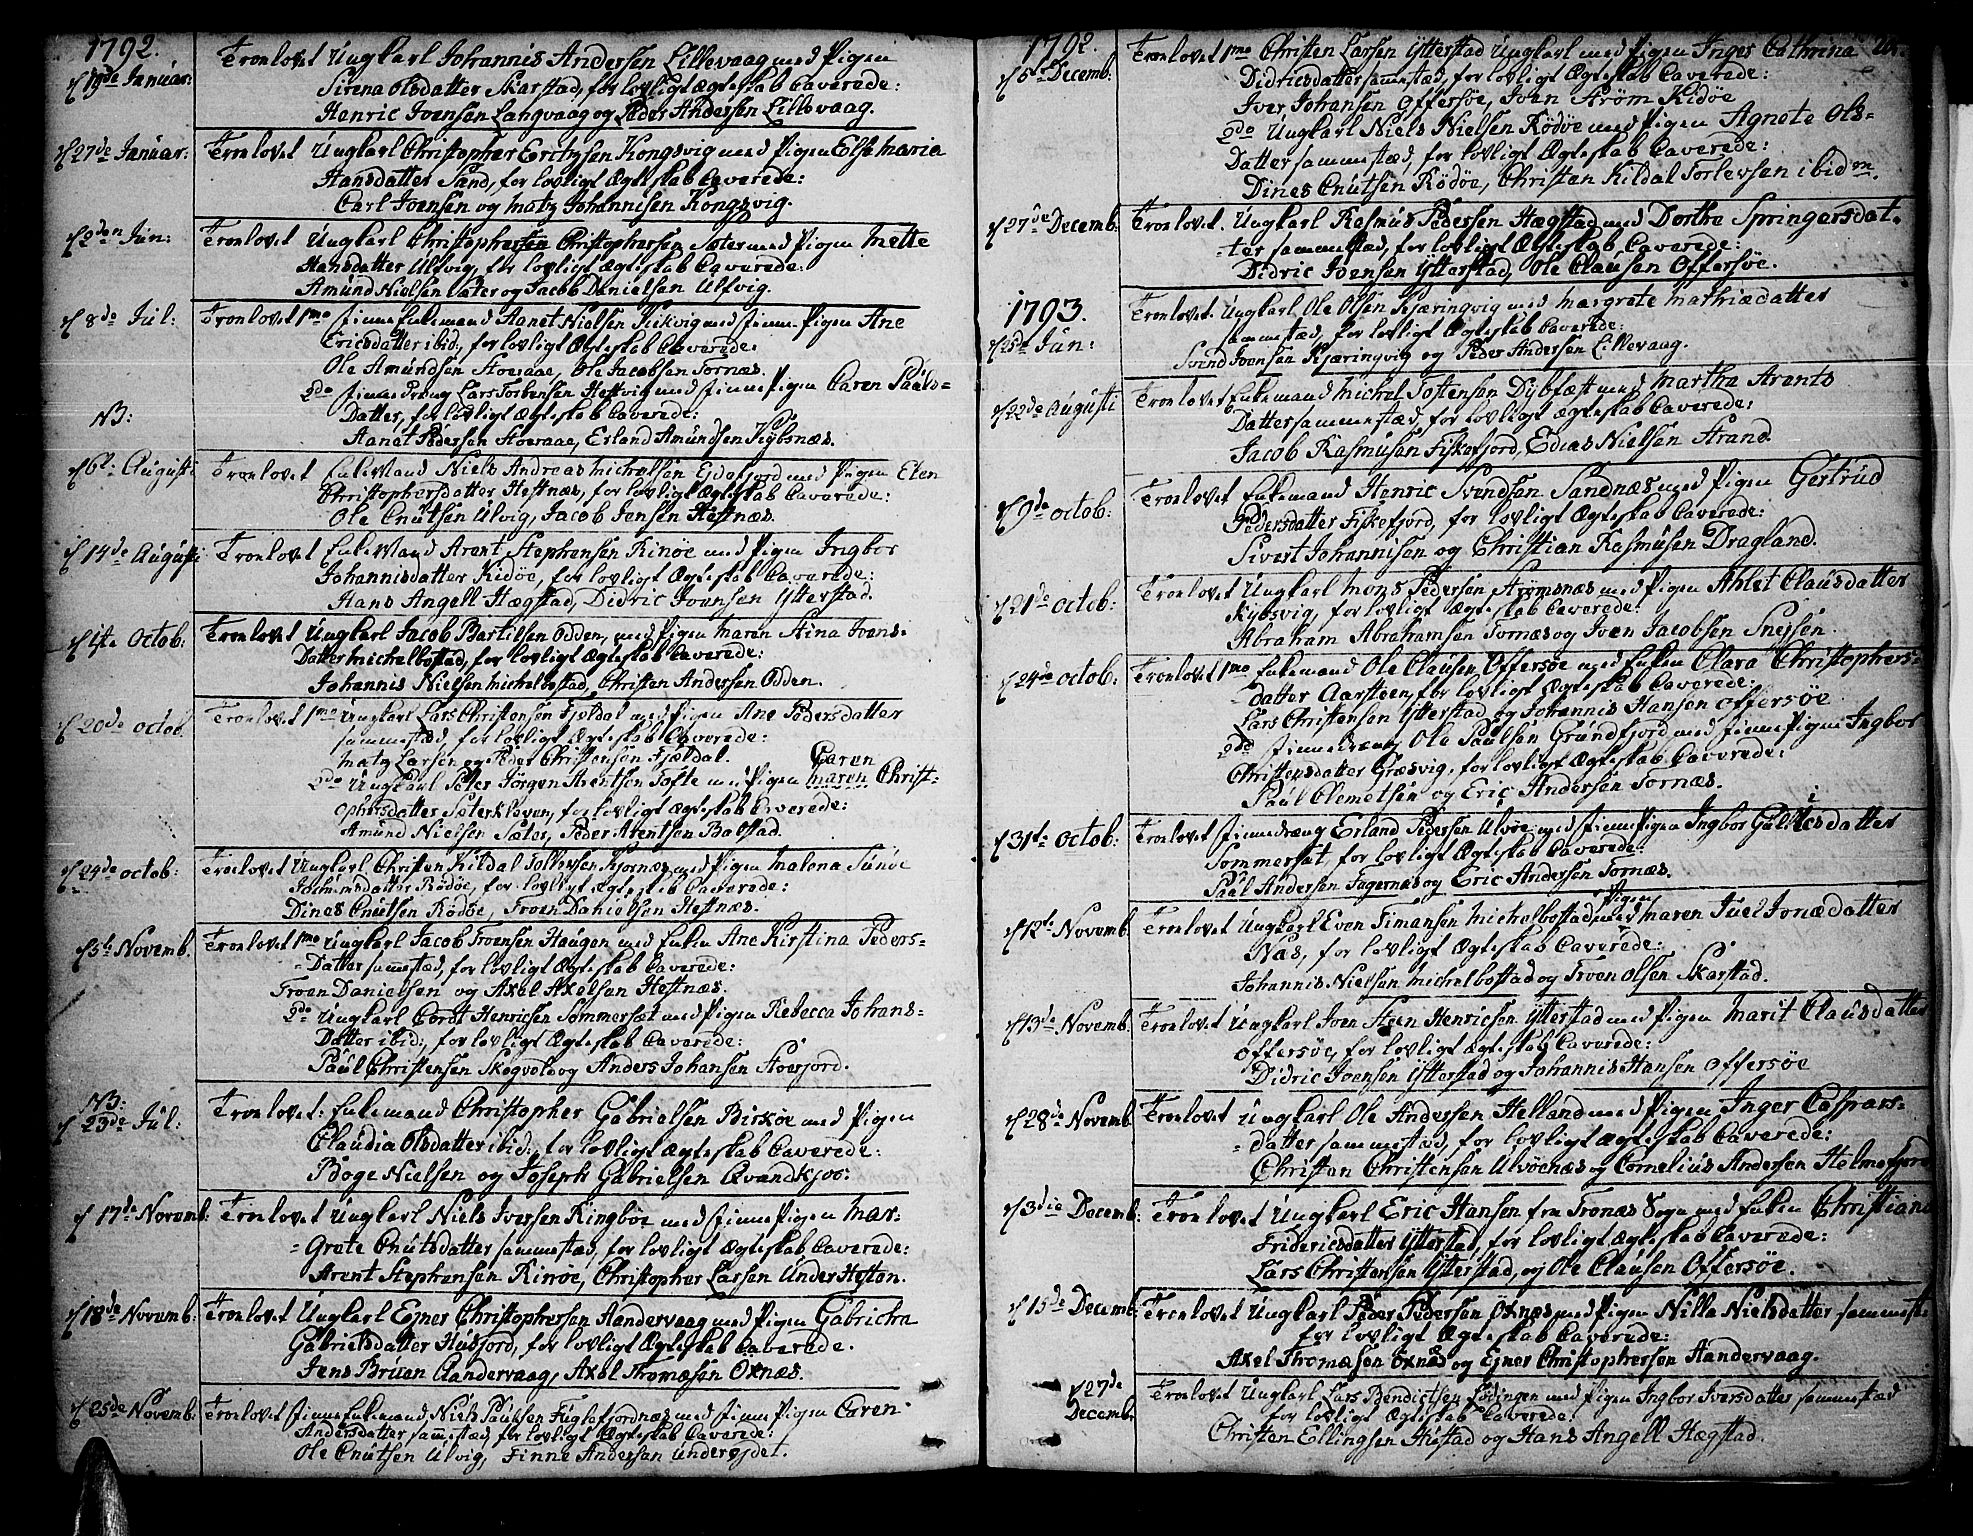 1792.
d 19de Januar: Tronlovet Ungkarl Johannis Andersen Lillevaag med Pigen
Sirena Olsdatter Skarstad, for lovligt Ægteskab Caverede:
Henric Ivensen Langvaag og Peder Andersen Lillevaag.
d 27de Januar: Tronlovet Ungkarl Christopher Kongsvig med Pigen Else Maria
Hansdatter Sand, for lovligt Ægteskab Caverede:
Carl Joensen og Matz Johannisen Kongsvig.
d 2den Jun: Tronlovet Ungkarl Christophersen Sæter med Pigen Mette
Hansdatter Ulfvig, for lovligt Ægteskab Caverede:
Amund Nielsen Sæter og Jacob Danielsen Ulfvig.
d 8de Jul: Tronlovet 1mo finne Enkemand Aanet Nielsen med finne-Pigen Ane
Ericsdatter ibid, for lovligt Ægteskab Caverede:
Ole Amundsen Stoeraae, Ole Jacobsen Tornæs.
2do finne Dreng Lars Torbensen med finne Pigen Caren Paals=
N3: Datter, for lovligt Ægteskab Caverede:
Aanet Pedersen Stoeraae, Erland Amundsen Kybsnæs.
d 6t: Augusti Tronlovet Enkemand Niels Andreas Michelsen Eidefjord med Pigen Elen
Christophersdatter Hestnæs, for lovligt Ægteskab Caverede:
Ole Cnutsen Ulvig, Jacob Jensen Hestnæs.
d 14de Augusti Tronlovet Enkemand Arent Stephensen Rinøe med Pigen Ingbor
Johannisdatter Kidøe, for lovligt Ægteskab Caverede:
Hans Angell Hægstad, Didric Ivensen Ytterstad.
d 4te Octob: Tronlovet Ungkarl Jacob Bartilsen Odden, med Pigen Maren Stina Ivens-
Datter Michelbostad, for lovligt Ægteskab Caverede:
Johannis Nielsen Michelbostad, Christen Andersen Odden.
d 20de Octob. Tronlovet 1mo Ungkarl Lars Christensen Fjeldal med Pigen Ane Pedersdatter
sammestæd, for lovligt Ægteskab Caverede:
Matz Larsen og Peder Christensen Fjeldal. Caren
2do Ungkarl Peter Jørgen Arentsen Tofte med Pigen Maren Christ-
ophersdatter Sæterkleven, for lovligt Ægteskab Caverede:
Amund Nielsen Sæter, Peder Arentsen Balstad.
d 24de Octob: Tronlovet Ungkarl Christen Kildal Kjornæs med Pigen Malena Sunde
Jochimsdatter Rødøe, for lovligt Ægteskab Caverede:
Dines Cnutsen Rødøe, Troen Danielsen Hestnæs.
d 5t Novemb. Tronlovet 1mo Ungkarl Jacob Troensen Haugen med Enken Ane Kirstina Peders=
=Datter sammestæd, for lovligt Ægteskab Caverede:
Troen Danielsen og Axel Axelsen Hestnæs.
2do Ungkarl Cordt Henricsen Sommersæt med Pigen Rebecca Johans=
Datter ibid: for lovligt Ægteskab Caverede:
Paul Christensen Skogvold og Anders Johansen Stoerfjord.
N3:
d 23de Jul: Tronlovet: Enkemand Christopher Gabrielsen Birkøe med Pigen
Claudia Olsdatter ibid: for lovligt Ægteskab Caverede:
Boge Nielsen og Joseph Gabrielsen Qvandkjos:
d 17de Novemb: Tronlovet Ungkarl Niels Iversen Ringbøe med finne Pigen Mar-
=Grete Cnutsdatter sammestæd, for lovligt Ægteskab Caverede:
Arent Stephensen Rinøe, Christopher Larsen Under Heften.
d 18de Novemb: Tronlovet Ungkarl Ejner Christophersen Aandervaag med Pigen Gabricha
Gabrielsdatter Husjord, for lovligt Ægteskab Caverede.
Jens Bruen Aandervaag, Axel Thomasen Öxnæs.
d 25de Novemb: Tronlovet finne Enkemand Niels Paulsen Fuglefjordnæs med finne Pigen Caren
Andersdatter sammestæd, for lovligt Ægteskab Caverede:
Ole Cnutsen Ulvig, Finne Andersen
1792.
d 6t Decemb: Tronlovet 1mo Christen Larsen Ytterstad Ungkarl med Pigen Inger Cathrina
Didricsdatter sammestæd, for lovligt Ægteskab Caverede:
Iver Johansen Offersøe, Iven Strøm Kidøe
2do Ungkarl Niels Nielsen Rødøe med Pigen Agnete Ols=
Datter sammestæd, for lovligt Ægteskab Caverede:
Dines Cnutsen Rödøe, Christen Kildal Torlevsen ibidem.
d 27de Decemb. Tronlovet. Ungkarl Rasmus Pedersen Hægstad med Dorthe Springersdat-
=ter sammestæd, for lovligt Ægteskab Caverede:
Didric Ivensen Ytterstad, Ole Clausen Offersøe.
1793. Tronlovet. Ungkarl Ole Olsen Kjæringvig med Margrete Mathiædatter
d 25de Jun: sammestæd, for lovligt Ægteskab Caverede:
Svend Ivensen Kjæringvig og Peder Andersen Lillevaag.
d 22de Augusti Tronlovet Enkemand Michel Tostensen Dybfæst med Martha Arents
Datter sammestæd, for lovligt Ægteskab Caverede:
Jacob Rasmusen Fiskefjord, Edias Nielsen Strand.
d 9de Octob: Tronlovet Enkemand Henric Svendsen Sandnæs med Pigen Gertrud
Pedersdatter Fiskefjord, for lovligt Ægteskab Caverede:
Sivert Johannisen og Christian Rasmusen Dragland.
d 21de Octob: Tronlovet Ungkarl Mons Pedersen med Pigen Ahlet Clausdatter
Kybsvig, for lovligt Ægteskab Caverede:
Abraham Abrahamsen Tornæs og Iven Jacobsen Snejsen.
d 24de Octob: Tronlovet 1mo Enkemand Ole Clausen Offersøe med Enken Clara Christophers:
datter Aarsteen, for lovligt Ægteskab Caverede:
Lars Christensen Ytterstad og Johannis Hansen Offersøe
2do finnedreng Ole Paulsen Grundfjord med finne Pigen Ingbor
Christensdatter Græsvig, for lovligt Ægteskab Caverede:
Paul Clemetsen og Eric Andersen Tornæs.
d 31te Octob: Tronlovet finnedreng Erland Pedersen Ulvøe med finne Pigen Ingbor
Sommersæt, for lovligt Ægteskab Caverede:
Paul Andersen Fagernæs og Eric Andersen Tornæs.
d 12t Novemb. Tronlovet Ungkarl Even Timansen Michelbostad med Pigen Maren Juel Jonædatter
Næs, for lovligt Ægteskab Caverede:
Johannis Nielsen Michelbostad og Troen Olsen Skarstad.
d 13de Novemb. Tronlovet Ungkarl Iven Steen Henricsen Ytterstad med Pigen Marit Clausdatter
Offersøe, for lovligt Ægteskab Caverede:
Didric Ivensen Ytterstad og Johannis Hansen Offersøe
d 28de Novemb Tronlovet Ungkarl Ole Andersen Helland med Pigen Inger Caspars=
=datter sammestæd, for lovligt Ægteskab Caverede:
Christen Christensen Ulvöenæs og Cornelius Andersen
d 3die Decemb: Tronlovet Ungkarl Eric Hansen fra Tronæs Sogn med Enken Christian
Fridericsdatter Ytterstad, for lovligt Ægteskab Caverede:
Lars Christensen Ytterstad, og Ole Clausen Offersøe.
d 15de Decemb: Tronlovet Ungkarl Peder Pedersen Öxnæs med Pigen Nilla Nielsdatter sammeste
for lovligt Ægteskab Caverede:
Axel Thomasen Öxnæs og Ejner Christophersen Aandervaag.
d 27de Tronlovet Ungkarl Lars Bendictsen Lödingen med Pigen Ingbor Iversdatter sammestæd
Decemb. for lovligt Ægteskab Caverede:
Christen Ellingsen Hustad og Hans Angell Hægstad.